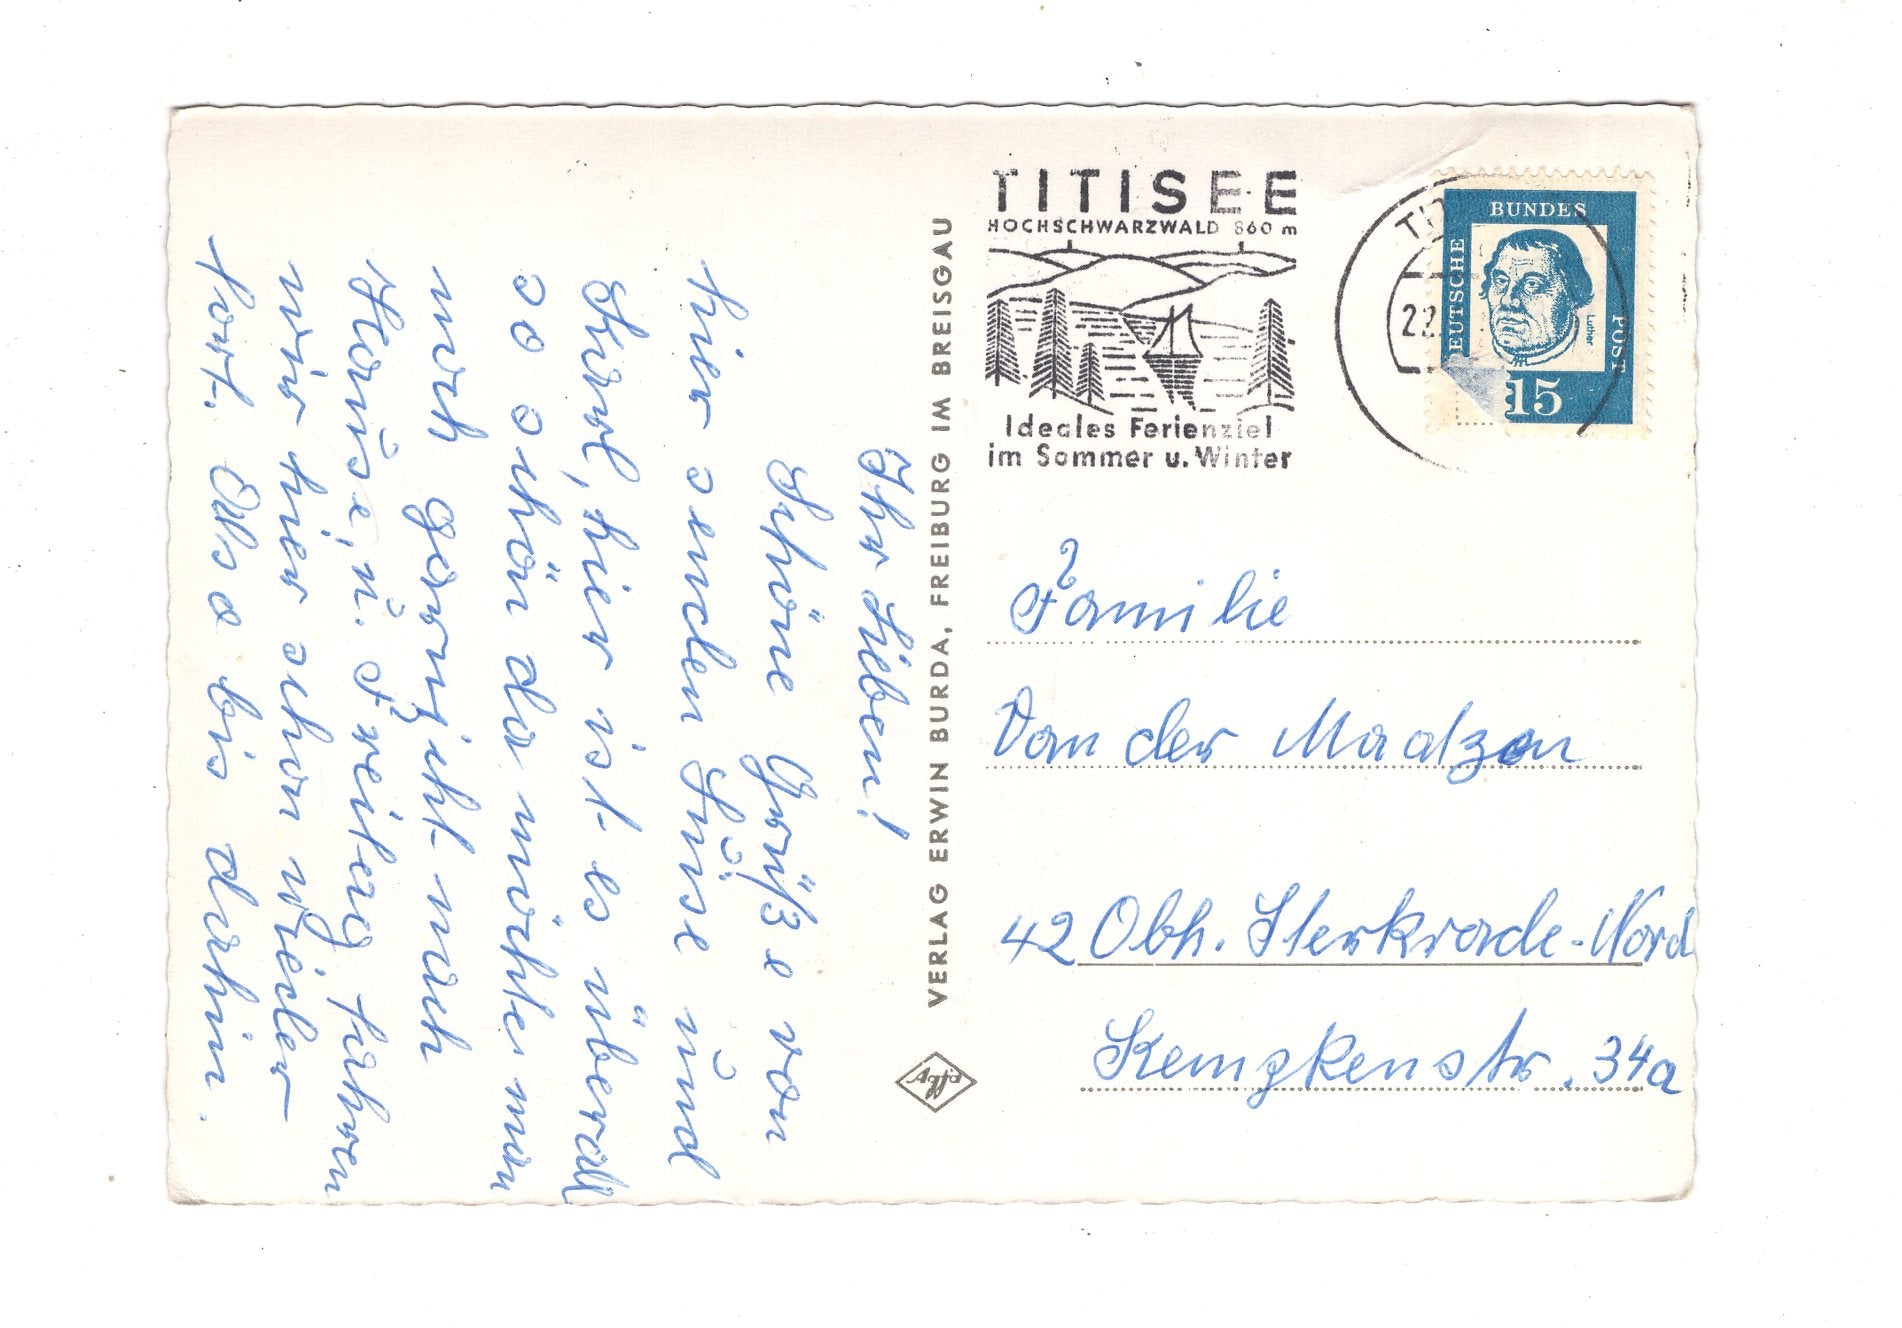 Ihr Lieben!
Schöne Grüße von
hier senden Luise und
Karl, hier ist es überall
so schön da möchte man
noch garnicht nach
Hause, u. Freitag fahren
wir hier schon wieder
fort. Also bis dahin.
VERLAG ERWIN BURDA, FREIBURG IM BREISGAU
Agfa
TITISEE
HOCHSCHWARZWALD 860 m
Ideales Ferienziel
im Sommer u. Winter
22
DEUTSCHE
BUNDES
POST
Luther
15
Familie
Van der
42 Obh. Sterkrade-Nord
Kempkenstr. 34a